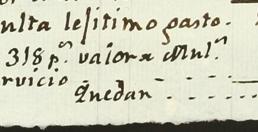 ulta lesitimo gasto.
318 p.ˢ valor a Mul.ˢ
rvicio
Quedan